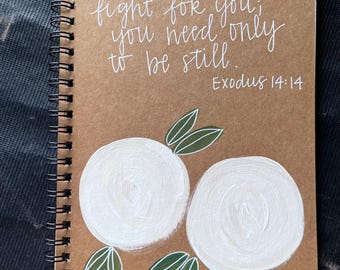 fight for you;
you need only
to be still.
Exodus 14:14